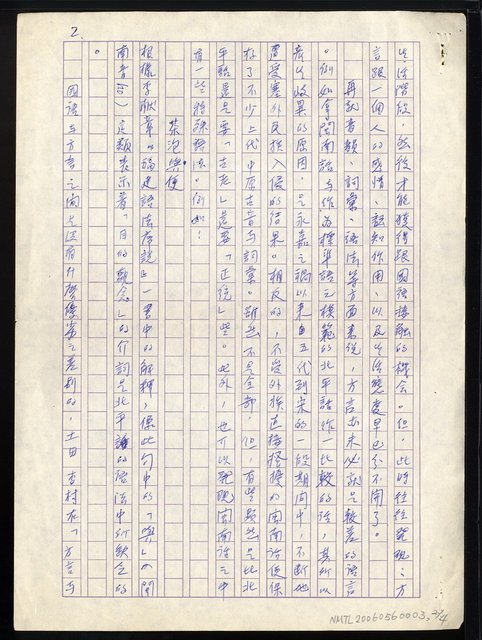 2.
生活階段,然後才能獲得跟國語接觸的機會。但,此時往往發現:方
言跟一個人的感情、認知作用、以及生活態度早已分不開了。
再就音韻、詞彙、語法等方面來說,方言亦未必就是較差的語言
。例如拿閩南話與作為標準語之模範的北平話作一比較的話,其所以
產生歧異的原因,是永嘉之禍以來自五代到宋的一段期間中,不斷地
遭受塞外民族入侵的結果。相反的,不受外族直接擾攘的閩南話便保
存了不少上代中原古音與詞彙。雖然不是全部,但,有些顯然是比北
平話還是要「古老」還要「正統」些。此外,也可以發現閩南話之中
有一些特殊語法。例如:
茶泡與便
根據李献璋的「福建語法序說」一書中的解釋,像此句中的「與」(閩
南音 )這類表示著「目的觀念」的介詞是北平話的語法中所缺乏的
。
國語與方言之間是沒有什麼優劣之差別的,土田杏村在「方言與
NMTL20060560003,2/4